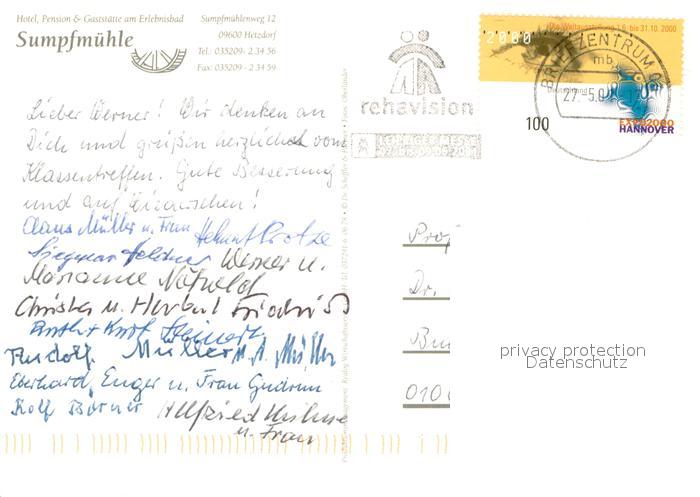 Hotel, Pension & Gaststätte am Erlebnisbad
Sumpfmühle
Sumpfmühlenweg 12
09600 Hetzdorf
Tel.: 035209- 2 34 56
Fax: 035209 - 2 34 59
Lieber Werner! Wir denken an
Dich und grüßen herzlichst vom
Klassentreffen. Gute Besserung
und auf Wiedersehen!
Claus Müller u. Frau Helmut Protze
Siegmar Werner u.
Marianne
Christa u. Herbert Friedrich
Ruth + Kurt Steinert
Rudolf Müller M. A. Müller
Eberhard Enger u. Frau Gudrun
Rolf Börner Allfried
u. Frau
rehavision
Die Weltausstellung 1.6. bis 31.10. 2000
2000
BRIEFZENTRUM 0
mb
Deutschland
27.-5.0
100
EXPO2000
HANNOVER
Prof
Dr.
010
privacy protection
Datenschutz